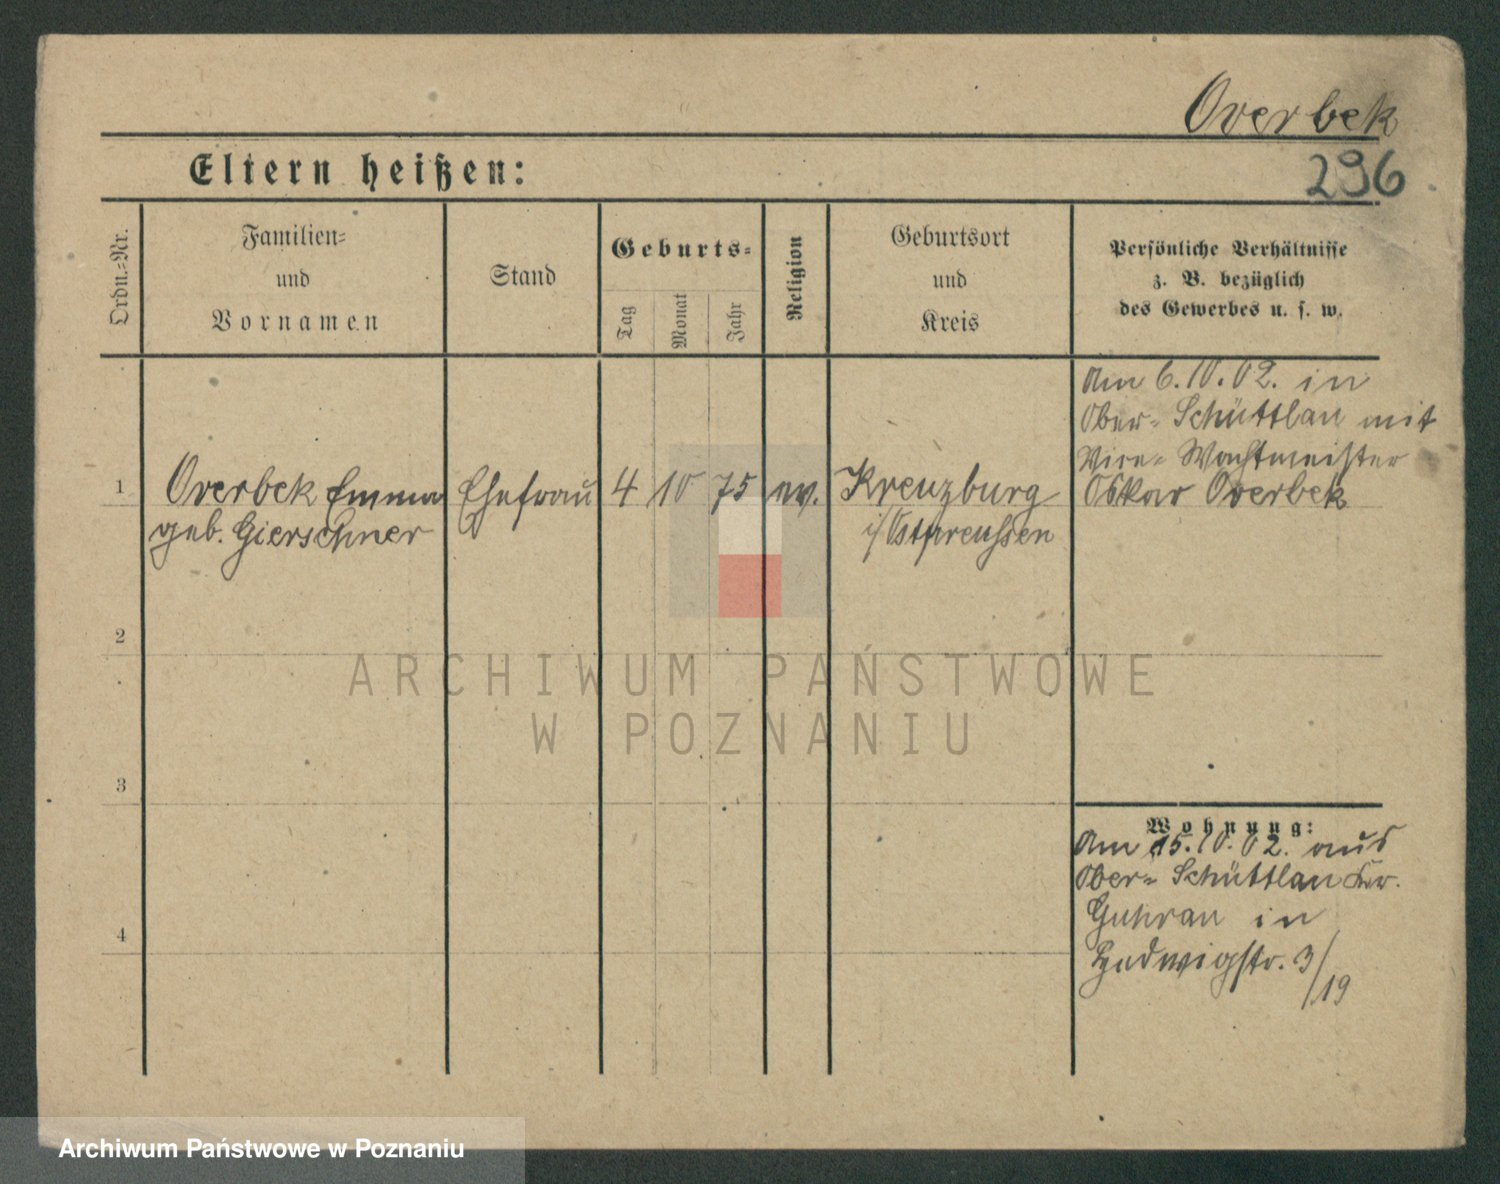 Overbek
296
Eltern heißen:
Ordn.=Nr.
Familien=
und
Vornamen
Stand
Geburts=
Tag
Monat
Jahr
Religion
Geburtsort
und
Kreis
Persönliche Verhältnisse
z. B. bezüglich
des Gewerbes u. s. w.
Am 6.10.02. in
Ober- Schüttlau mit
Vice- Wachtmeister
Oskar Overbek
1 Overbek Emma Ehefrau 4 10 75 ev. Kreuzburg
geb. Gierschner i/Ostpreußen
2
ARCHIWUM PAŃSTWOWE
W POZNANIU
3
Wohnung:
Am 15.10.02. aus
Ober- Schüttlau Kr.
Guhrau in
Hedwigstr. 3/19
4
Archiwum Państwowe w Poznaniu